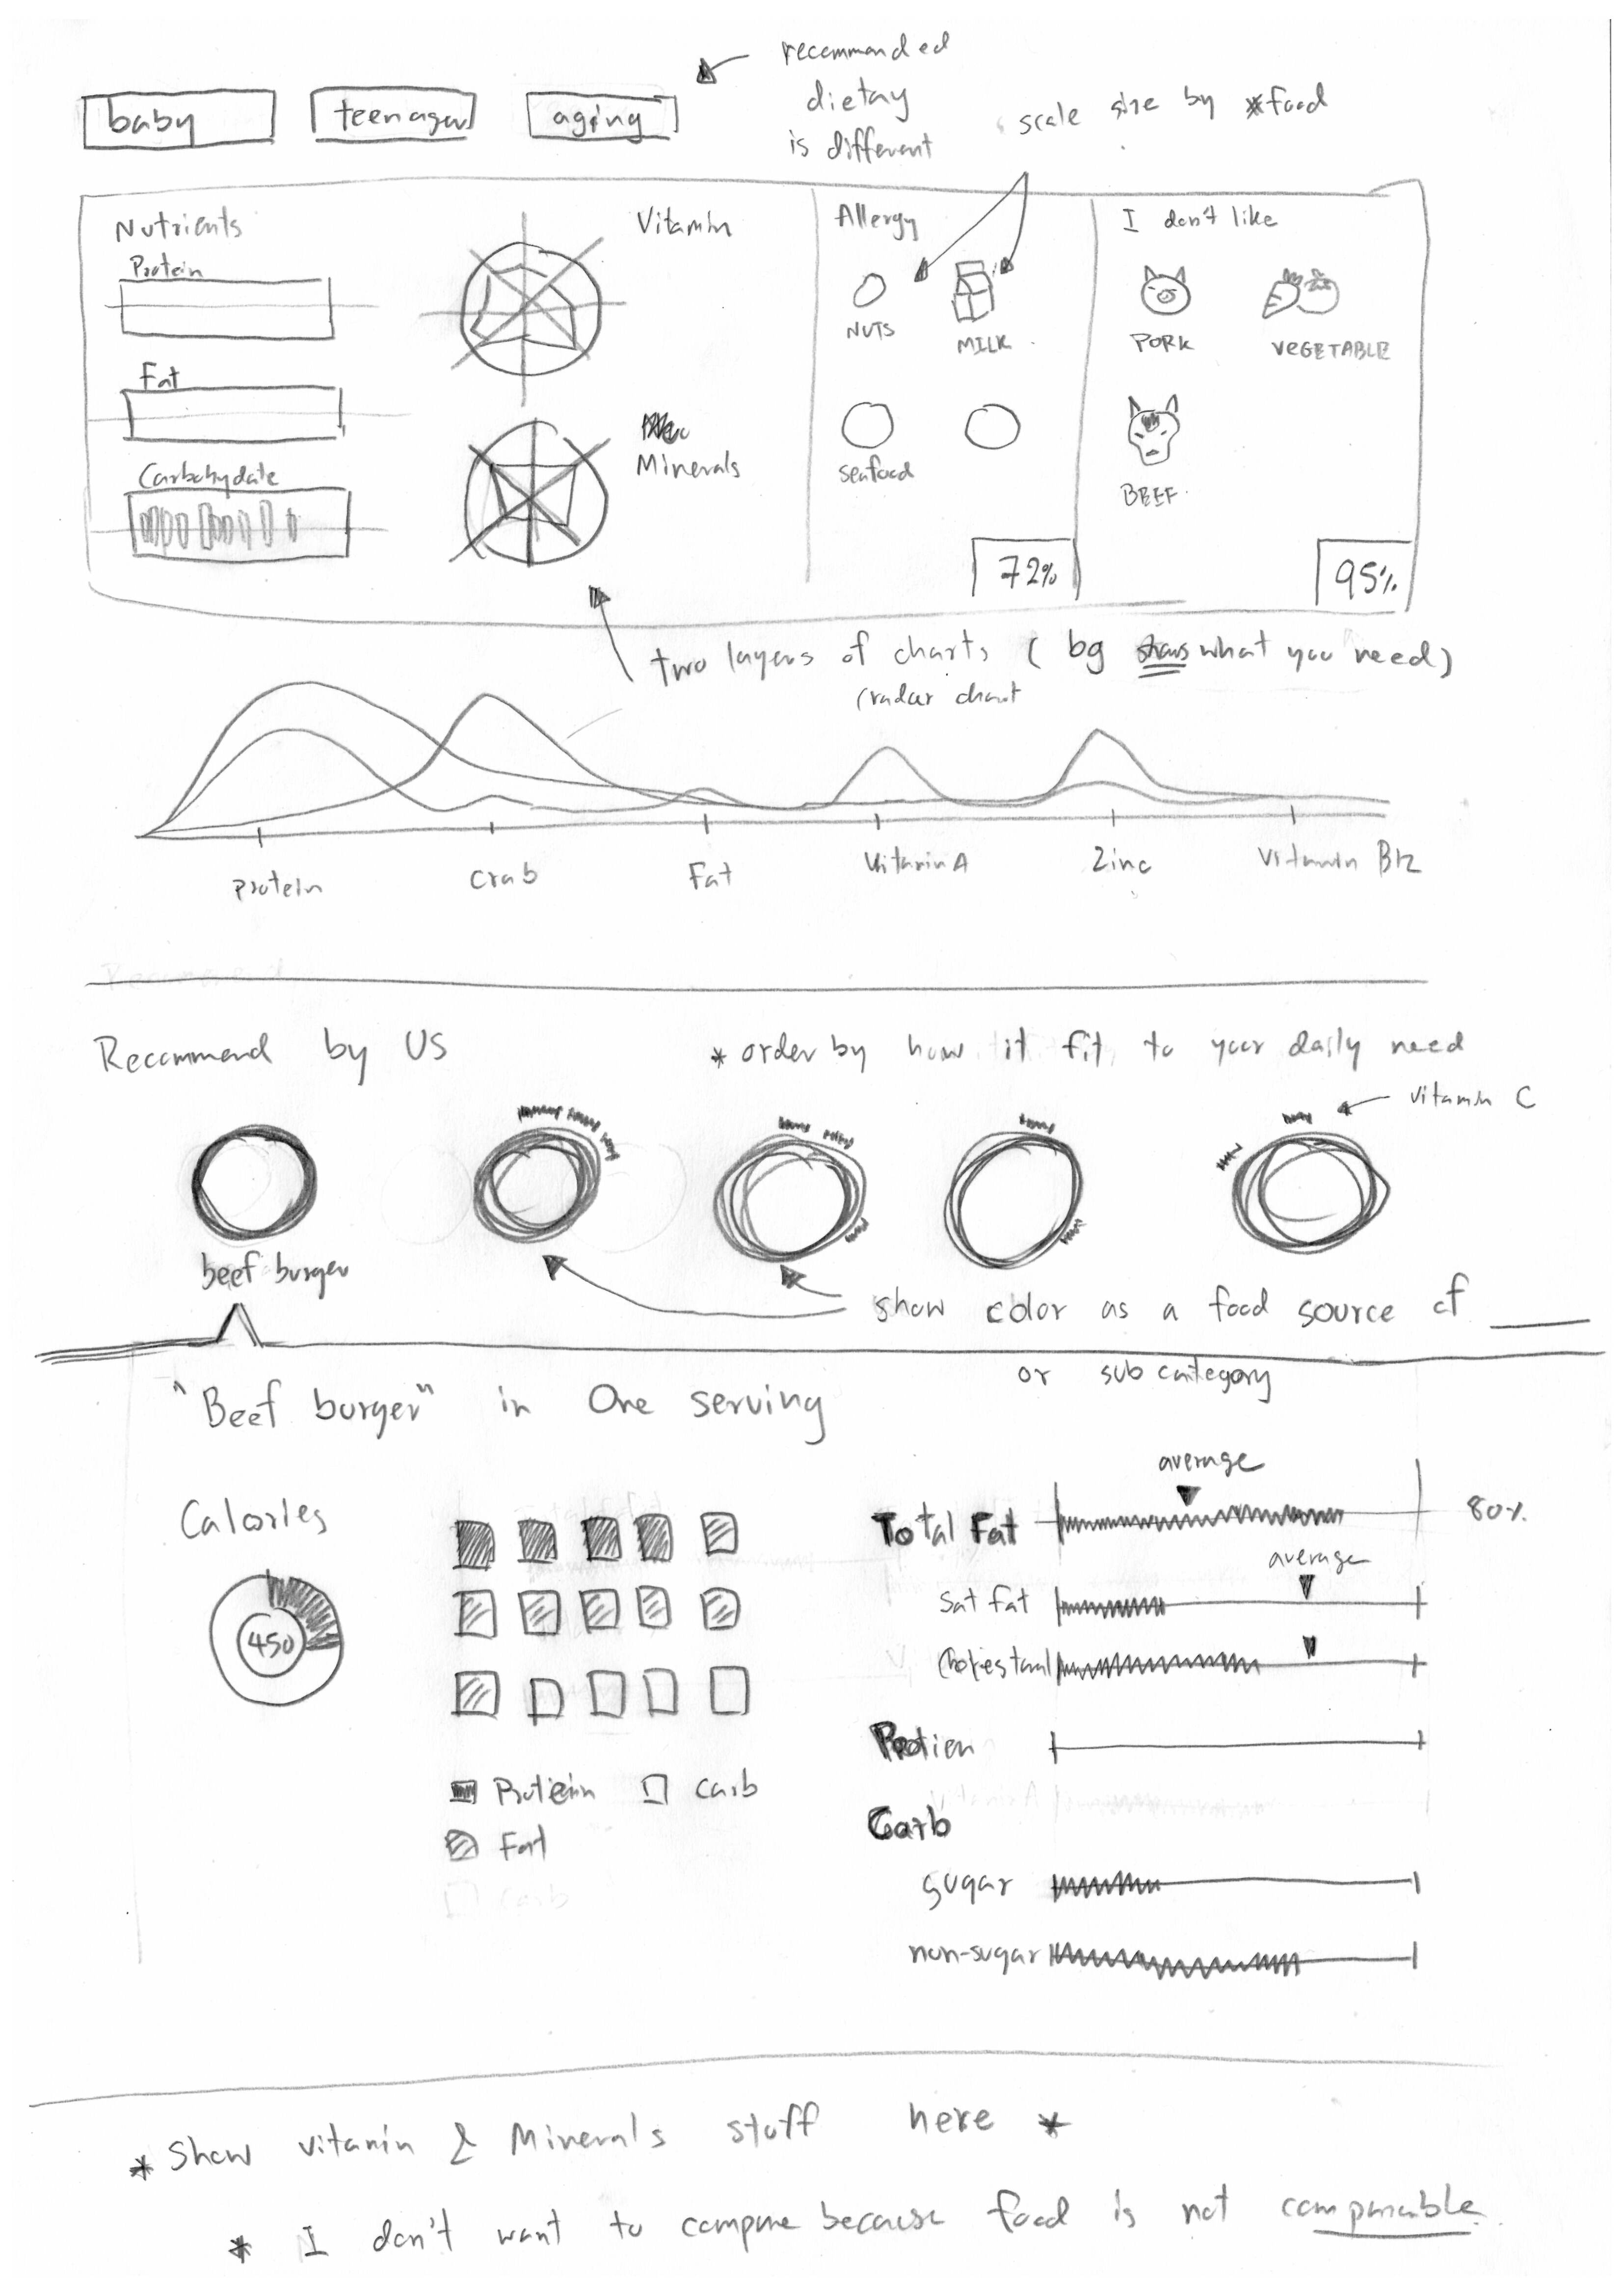 recommanded
dietay
is different
scale size by *food
baby
teenager
aging
Nutrients
Protein
Fat
Carbohydate
Vitamin
Minerals
Allergy
NUTS
MILK
seafood
72%
I don't like
PORK
VEGETABLE
BEEF
95%
two layers of charts ( bg shows what you need)
(radar chart
protein
crab
Fat
Vitamin A
Zinc
Vitamin B12
Recommend by US
* order by how it fit to your daily need
vitamin C
beef burger
show color as a food source of
or sub category
"Beef burger" in One serving
Calories
450
Protein
Carb
Fat
carb
average
Total Fat
80%
average
Sat fat
Protien
Carb
sugar
non-sugar
* Show vitamin & Minerals stuff here *
* I don't want to compare because food is not comparable